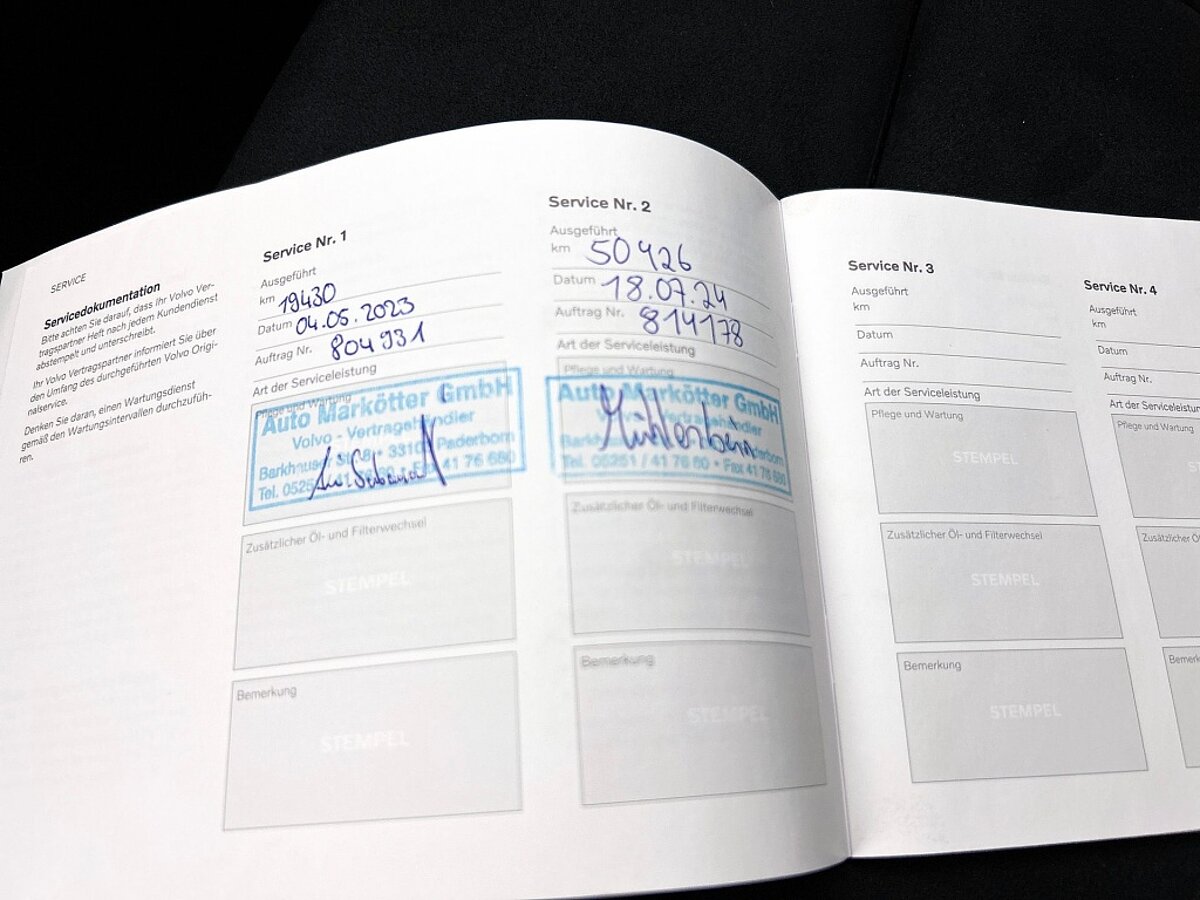 SERVICE
Servicedokumentation
Bitte achten Sie darauf, dass Ihr Volvo Ver-
tragspartner Heft nach jedem Kundendienst
abstempelt und unterschreibt.
Ihr Volvo Vertragspartner informiert Sie über
den Umfang des durchgeführten Volvo Origi-
nalservice.
Denken Sie daran, einen Wartungsdienst
gemäß den Wartungsintervallen durchzufüh-
ren.
Service Nr. 1
Ausgeführt
km 19430
Datum 04.05.2023
Auftrag Nr. 804931
Art der Serviceleistung
Pflege und Wartung
Auto Markötter GmbH
Volvo - Vertragshändler
Barkhauser Str. 8 • Paderborn
Tel. 41 76 680
Zusätzlicher Öl- und Filterwechsel
STEMPEL
Bemerkung
STEMPEL
Service Nr. 2
Ausgeführt
km 50426
Datum 18.07.24
Auftrag Nr. 814178
Art der Serviceleistung
Pflege und Wartung
Auto Markötter GmbH
Tel. 05251 / 41 76 60 • Fax 41 76 680
Zusätzlicher Öl- und Filterwechsel
STEMPEL
Bemerkung
STEMPEL
Service Nr. 3
Ausgeführt
km
Datum
Auftrag Nr.
Art der Serviceleistung
Pflege und Wartung
STEMPEL
Zusätzlicher Öl- und Filterwechsel
STEMPEL
Bemerkung
STEMPEL
Service Nr. 4
Ausgeführt
km
Datum
Auftrag Nr.
Art der Serviceleistu
Pflege und Wartung
Zusätzlicher Ö
Bemerk